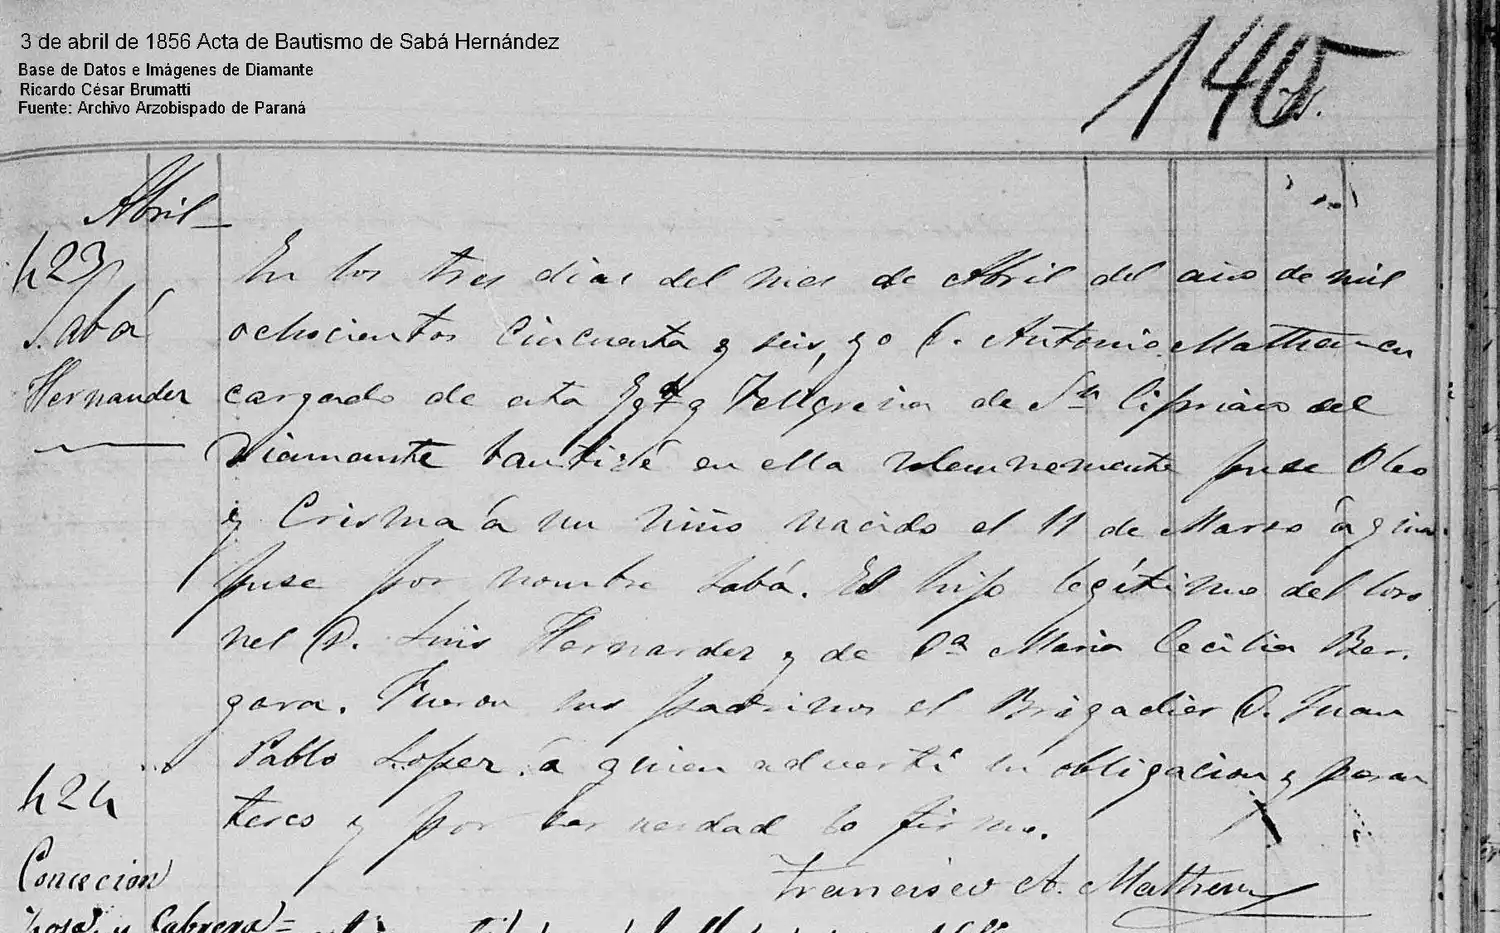 3 de abril de 1856 Acta de Bautismo de Sabá Hernández
Base de Datos e Imágenes de Diamante
Ricardo César Brumatti
Fuente: Archivo Arzobispado de Paraná
140
Abril
423
Sabá
Hernandez
En los tres dias del mes de Abril del año de mil
ochocientos cincuenta y seis, yo D. Antonio Matheu en
cargado de esta de Sn Cipriano del
Diamante bautizé en ella solemnemente puse Oleo
y Crisma á un niño nacido el 11 de Marzo á quien
puse por nombre Sabá. Es hijo legítimo del Coro
nel D. Luis Hernandez y de Da Maria Cecilia Ber.
gara. Fueron sus padrinos el Brigadier D. Juan
Pablo Lopez á quien advertí su obligacion y paren
tesco y por ser verdad lo firmo.
Francisco A. Matheu
424
Concecion
Rosa y Cabrera